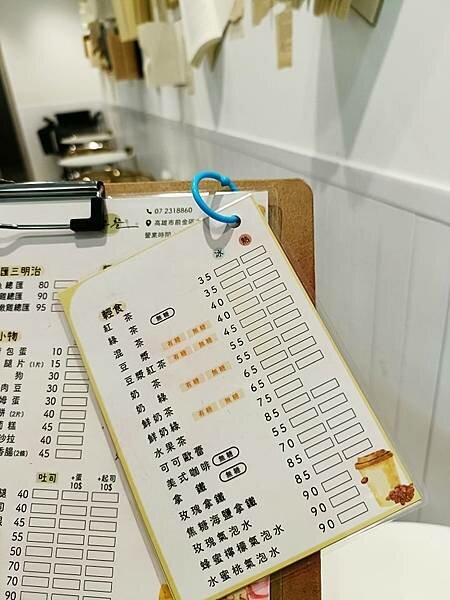 07 2318860
高雄市前金區
營業時間
匯三明治
總匯 80
總匯 90
總匯 95
小物
包蛋 10
腿片 (1片) 15
狗 30
肉豆 30
姆蛋 30
餅 (2片) 40
蔔糕 45
沙拉 40
香腸 (2條) 45
吐司 +蛋 10$ +起司 10$
腿 40
冰 熱
輕食
紅茶 無糖 35
綠茶 35
混茶 40
豆漿 有糖 無糖 40
豆漿紅茶 有糖 無糖 45
奶茶 45
奶綠 有糖 無糖 55
鮮奶茶 55
鮮奶綠 有糖 無糖 65
水果茶 75
可可歐蕾 85
美式咖啡 無糖 55
拿鐵 無糖 70
玫瑰拿鐵 85
焦糖海鹽拿鐵 85
玫瑰氣泡水 90
蜂蜜檸檬氣泡水 90
水蜜桃氣泡水 90